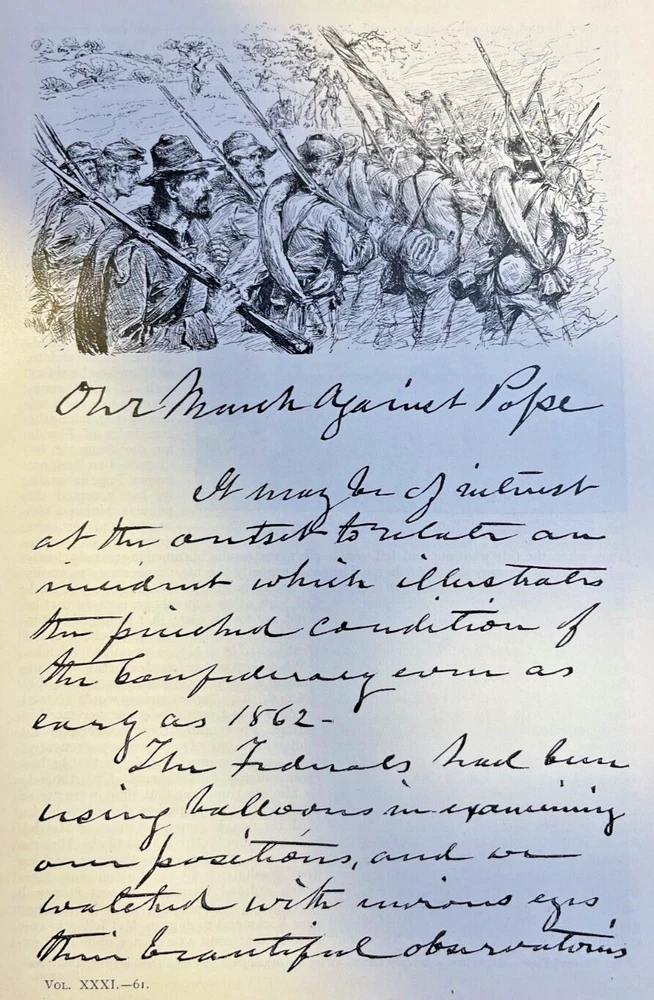 Our March Against Pope
It may be of interest
at the outset to relate an
incident which illustrates
the pinched condition of
the Confederacy even as
early as 1862-
The Federals had been
using balloons in examining
our positions, and we
watched with envious eyes
their beautiful observations
VOL. XXXI.—61.